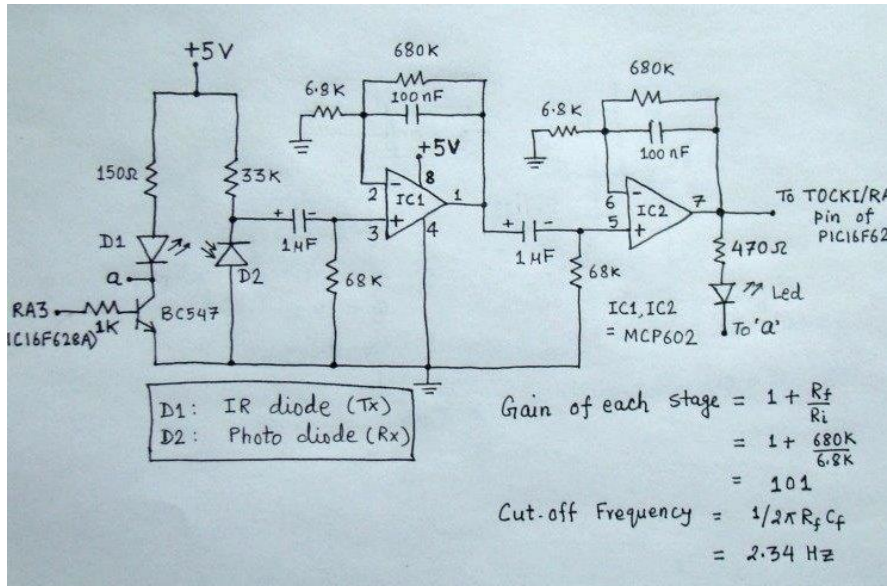 +5V
680K
6.8K
100nF
+5V
150Ω
33K
2
-
8
IC1
1
+
3
4
+
-
1µF
68K
D1
D2
a
RA3
1K
BC547
IC16F628A)
680K
6.8K
100nF
6
-
IC2
7
5
+
+
-
1µF
68K
To TOCKI/RA
pin of
PIC16F62
470Ω
Led
To 'a'
IC1, IC2
= MCP602
D1: IR diode (Tx)
D2: Photo diode (Rx)
Gain of each stage = 1 + Rf/Ri
= 1 + 680K/6.8K
= 101
Cut-off Frequency = 1/2π Rf Cf
= 2.34 Hz